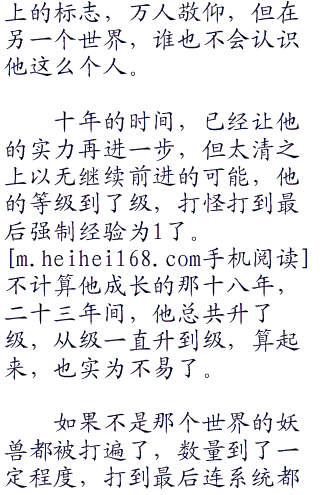 上的标志，万人敬仰，但在
另一个世界，谁也不会认识
他这么个人。
十年的时间，已经让他
的实力再进一步，但太清之
上以无继续前进的可能，他
的等级到了级，打怪打到最
后强制经验为1了。
[m.heihei168.com手机阅读]
不计算他成长的那十八年，
二十三年间，他总共升了
级，从级一直升到级，算起
来，也实为不易了。
如果不是那个世界的妖
兽都被打遍了，数量到了一
定程度，打到最后连系统都